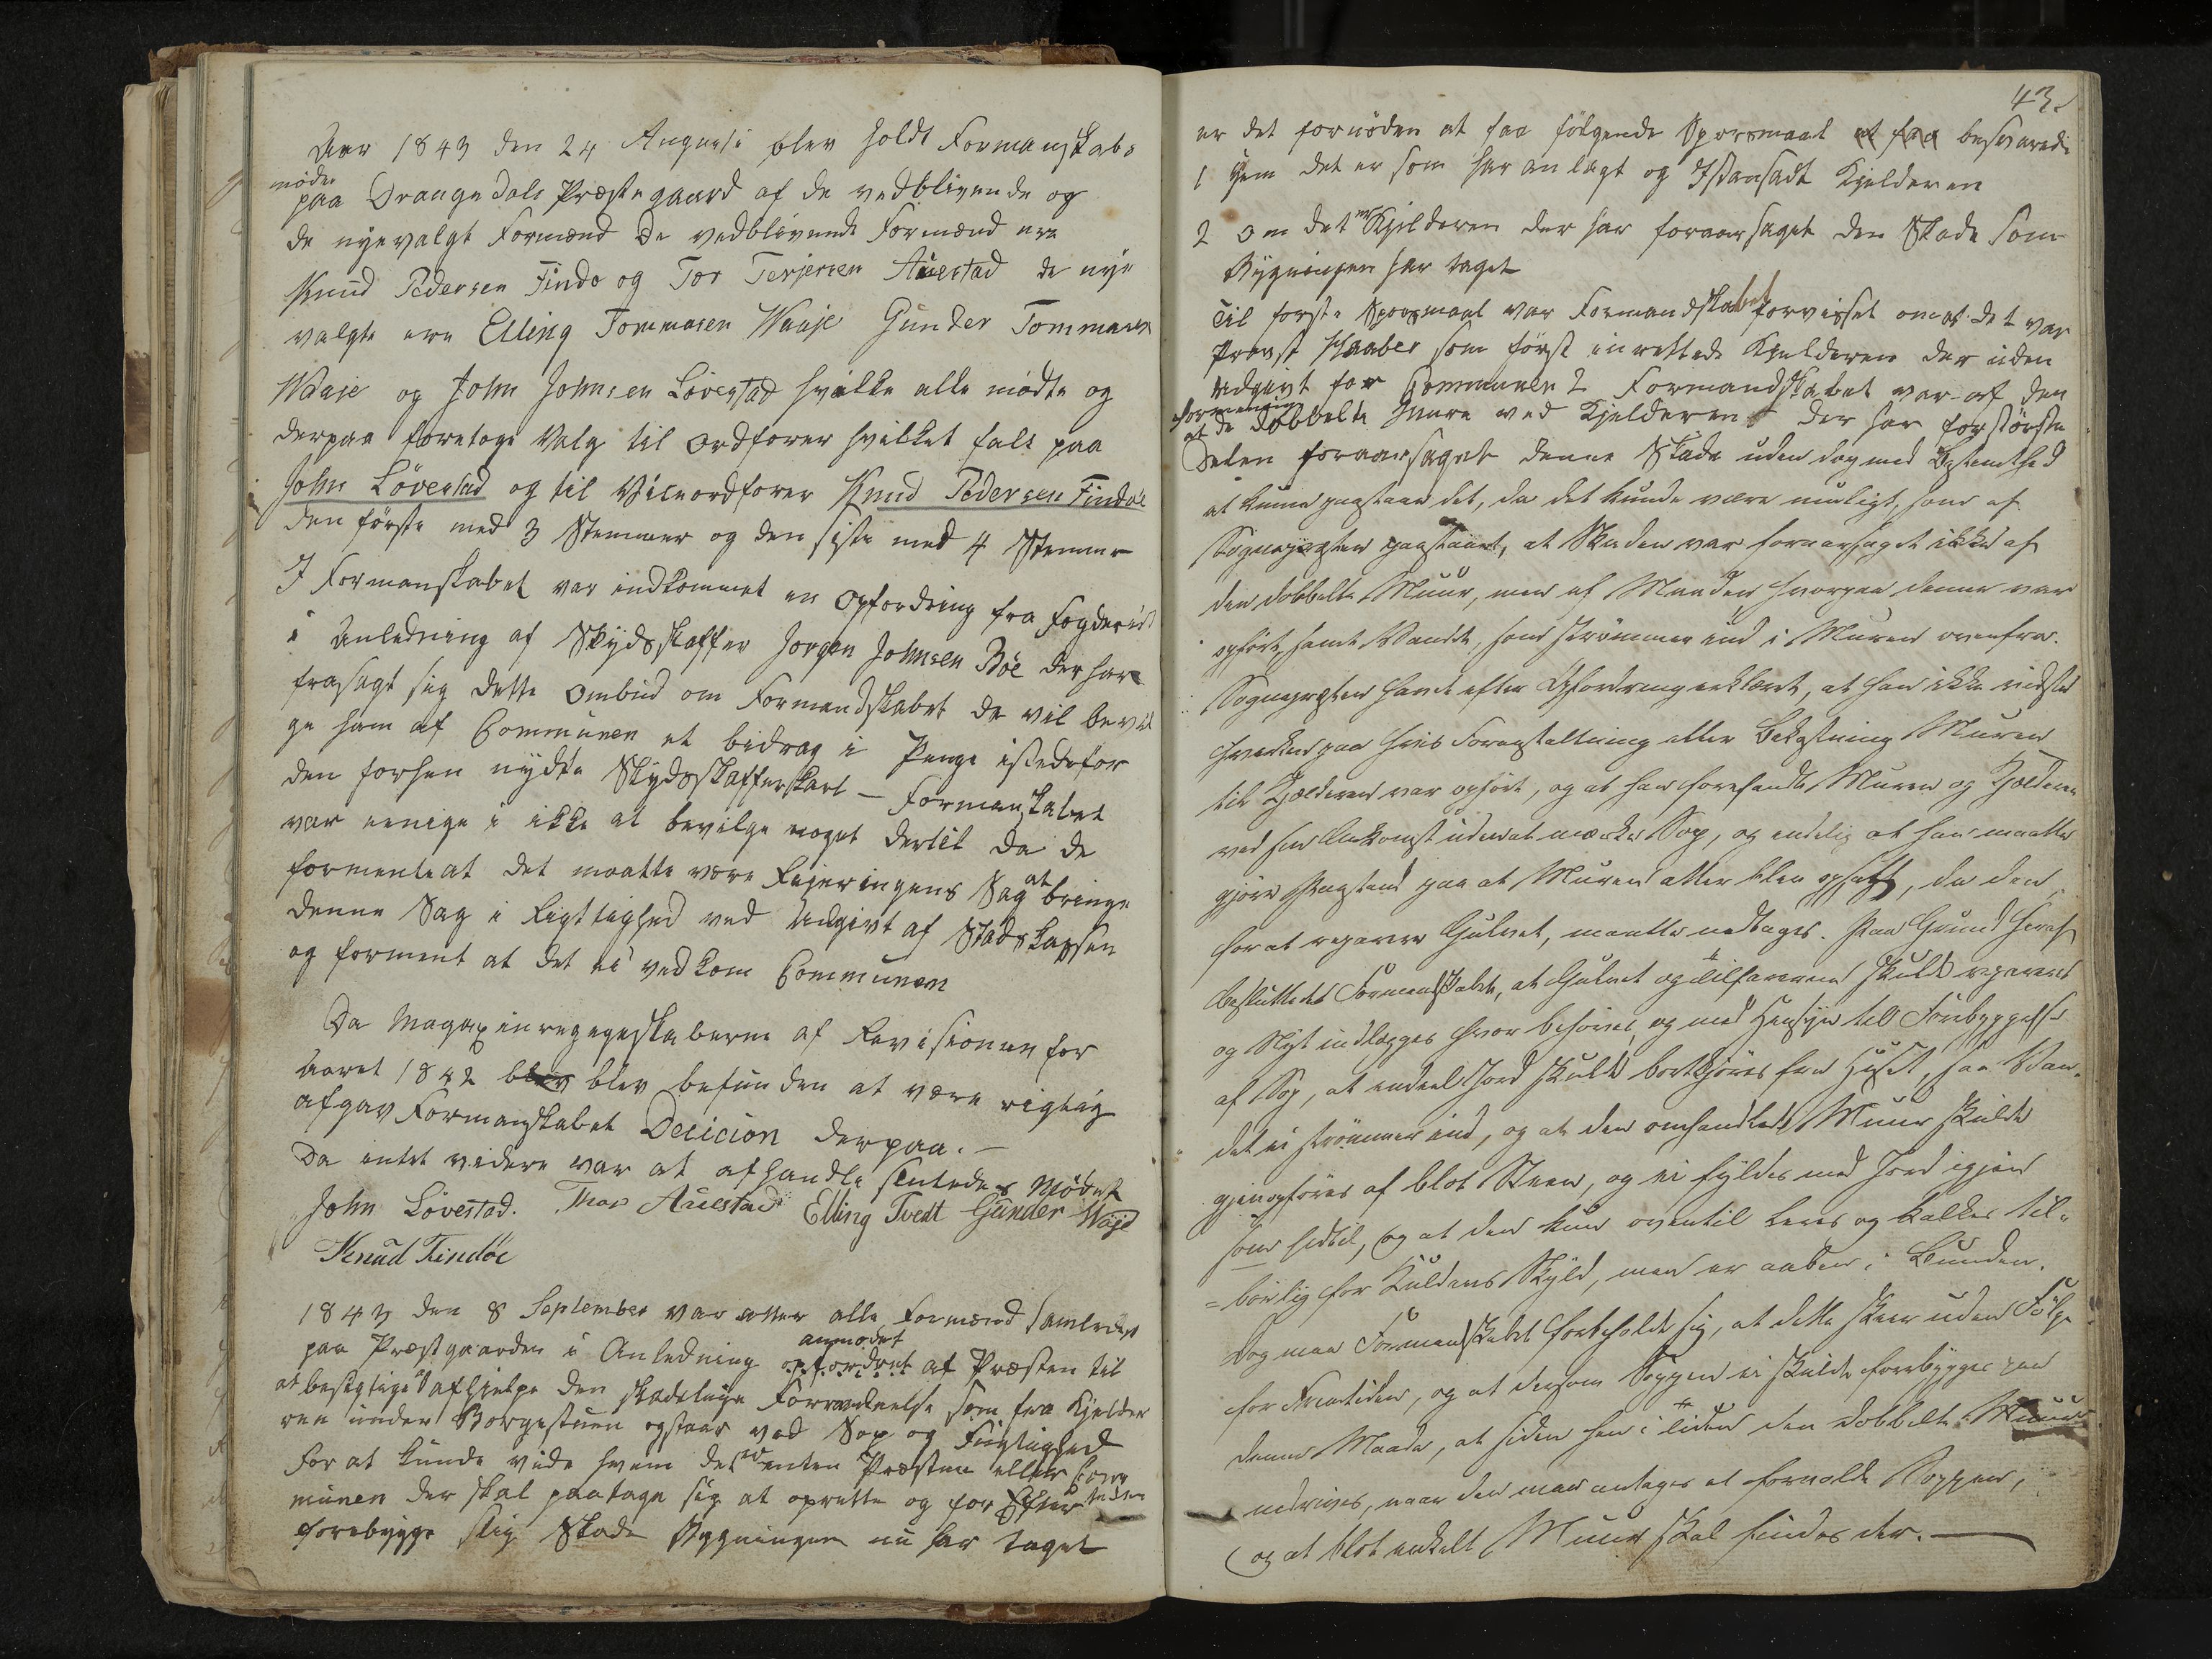 Aar 1843 den 24 Augusti blev holdt Formanskabs
møde
paa Drangedals Præstegaard af de vedblivende og
de nyevalgt Formænd De vedblivende Formænd ere
Knud Pedersen Findø og Tor Terjersen Auestad de nye
valgte ere Elling Tommasen Waaje Gunder Tommasen
Waaje og John Johnsen Lövestad hvilke alle mødte og
derpaa foretoges Valg til Ordfører hvilket falt paa
John Lövestad og til Viseordfører Knud Pedersen Findöe
den første med 3 Stemmer og den siste med 4 Stemmer
I Formanskabet var indkommet en Opfordring fra Fogderiet
i Anledning af Skydsskaffer Jørgen Johnsen Böe der har
frasagt sig dette Ombud om Formandskabet de vil bevil
ge ham af Communen et bidrag i Penge istedefor
den forhen nydte Skydsskafferskat – Formanskabet
var eenige i ikke at bevilge noget dertil da de
formente at det maatte være Regjeringens Sag at bringe
denne Sag i Rigtighed ved Udgivt af Stadskassen
og forment at det ei vedkom Communen
Da Magazinregnskaberne af Revisionen for
Aaret 1842 blev blev befunden at være rigtig
afgav Formanskabet Decicion derpaa. –
Da intet videre var at afhandle sluttedes Mödet
John Lövestad. Thor Auestad Elling Tvedt Gunder Wöje
Knud Findöe
1843 den 8 September var atter alle Formænd samlede
paa Præstgaarden i Anledning opfordret af Præsten til
anmodet
at besigtige at afhjelpe den skadelige Forraadnelse som fra Kjelder
ren under Borgestuen opstaar ved Sop og Fugtighed
For at kunde vide hvem det er enten Præsten eller Com
munen der skal paatage sig at oprette og for Eftertiden
forebygge slig Skade Bygningen nu har taget
43
er det fornöden at faa følgende Sporsmaal at faa besvarede
1 Hvem det er som har anlagt og Istansadt Kjelderen
2 Om det er Kjelderen der har foraarsaget den Skade som
Bygningen har taget
Til første Sporsmaal var Formandskabet forvisset om at det var
Provst Staaber som först inrettede Kjelderen der uden
Udgivt for Communen 2 Formandskabet var af den
formening
at de dobbelte Mure ved Kjelderen der har for störste
Delen foraarsaget denne Skade uden dog med Bestemthed
at kunne paastaae det, da det kunde være muligt, som af
Sognepræsten paastaaet, at Skaden var foraarsaget ikke af
den dobbelte Muur, men af Maaden, hvorpaa denne var
opført, samt Vandet, som strömmer ind i Muren ovenfra.
Sognepræsten havde efter Opfordring erklæret, at han ikke vidste
hverken paa hvis Foranstaltning eller Bekostning Muren
til Kjælderen var opført, og at han forefandt Muren og Kjælderen
ved sin Ankomst uden at mærke Sop, og endelig at han maatte
gjöre Paastand paa at Muren atter blev opsatt, da den
for at reparere Gulvet, maatte nedtages. Paa Grund heraf
besluttede Formandskabet, at Gulvet og Tilfarerne skulde repareres
og Nyt indlægges hvor behöves, og med Hensyn til Forebyggelse
af Sop, at endeel Jord skulde bortkjöres fra Huset, saa Van-
det ei strömmer ind, og at den omhandlede Muur skulde
gjenopføres af blot Steen, og ei fyldes med Jord igjen
som hidtil, og at den kun oventil leres og kalkes til-
=börlig for Kuldens Skyld, men er aaben i Bunden.
Dog maa Formandskabet forbeholde sig, at dette skeer uden Fölge
for Fremtiden, og at dersom Soppen ei skulde forebygges paa
denne Maade, at siden hen i Tiden den dobbelte Muur
nedrives, naar den maa antages at forvolde Soppen,
og at blot enkelt Muur skal findes der. —